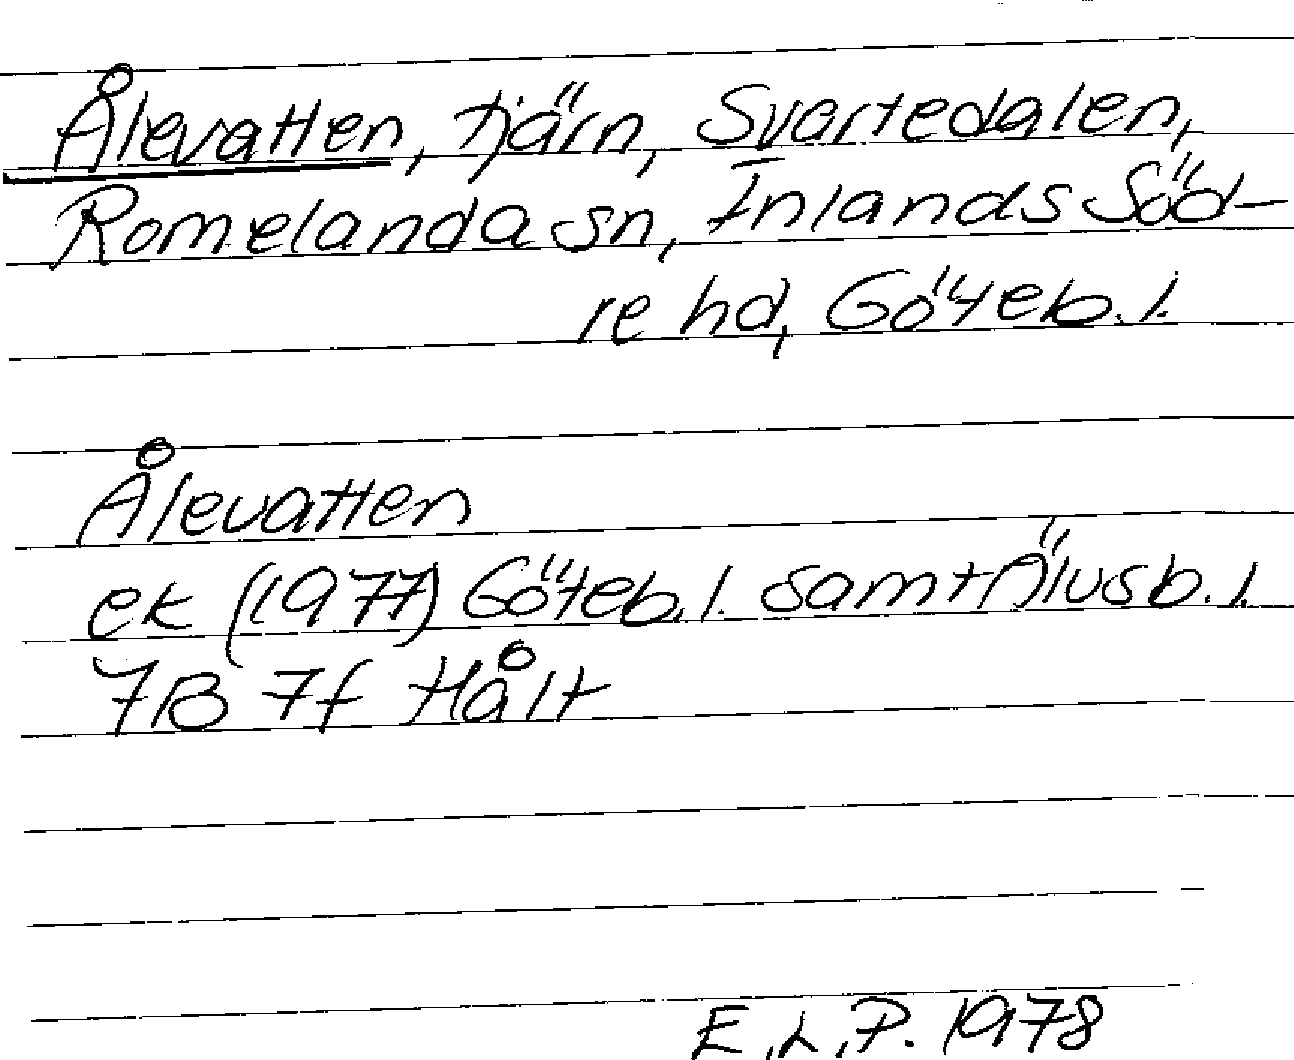 Ålevatten, tjärn, Svartedalen,
Romelanda sn, Inlands Söd-
re hd, Göteb. l.
Ålevatten
ek (1977) Göteb. l. samt Älvsb. l.
7B 7f Hålt
E.L.P. 1978